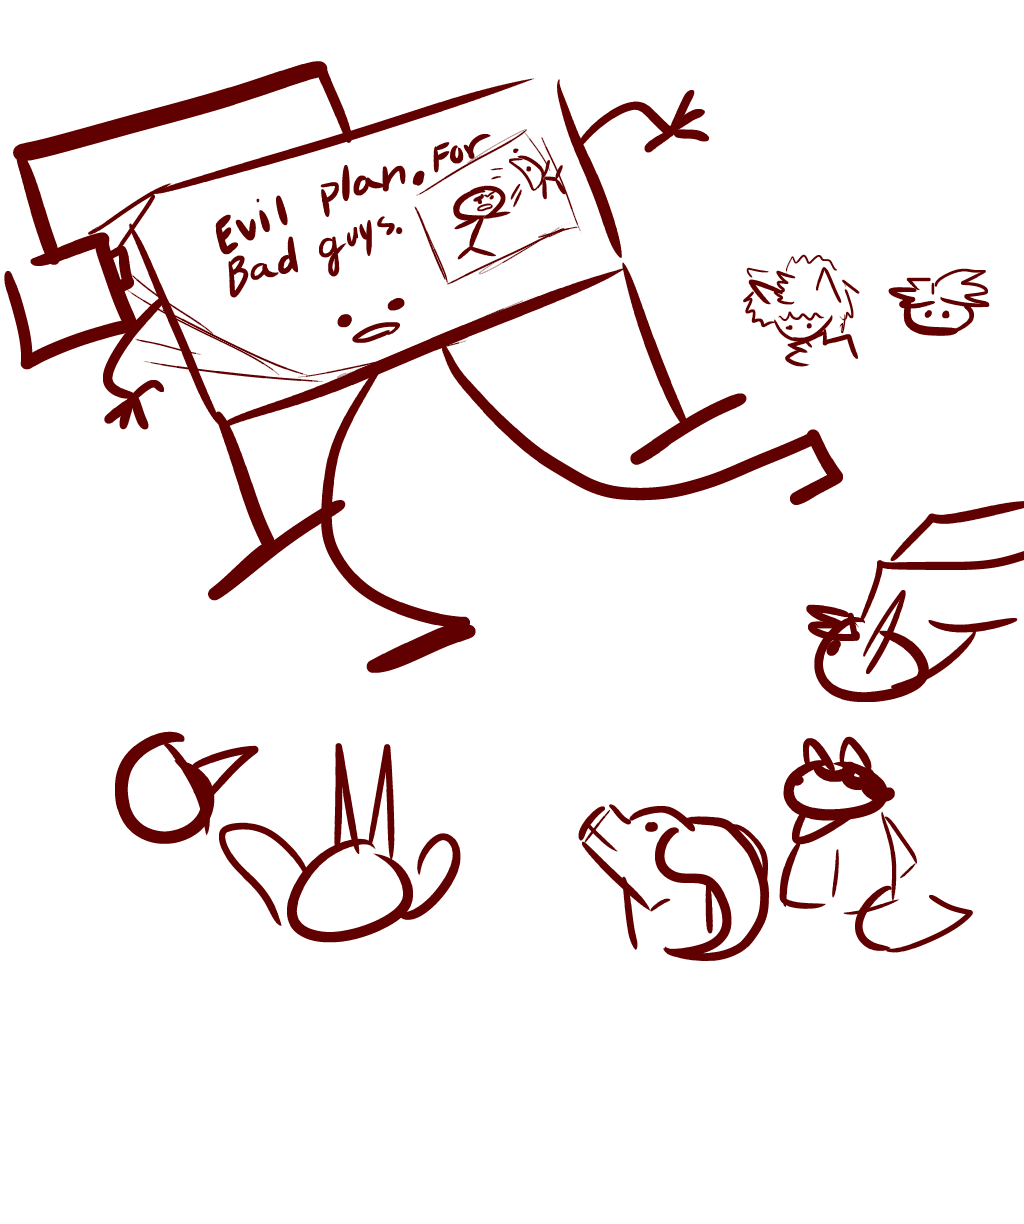 Evil plan. For
Bad guys.